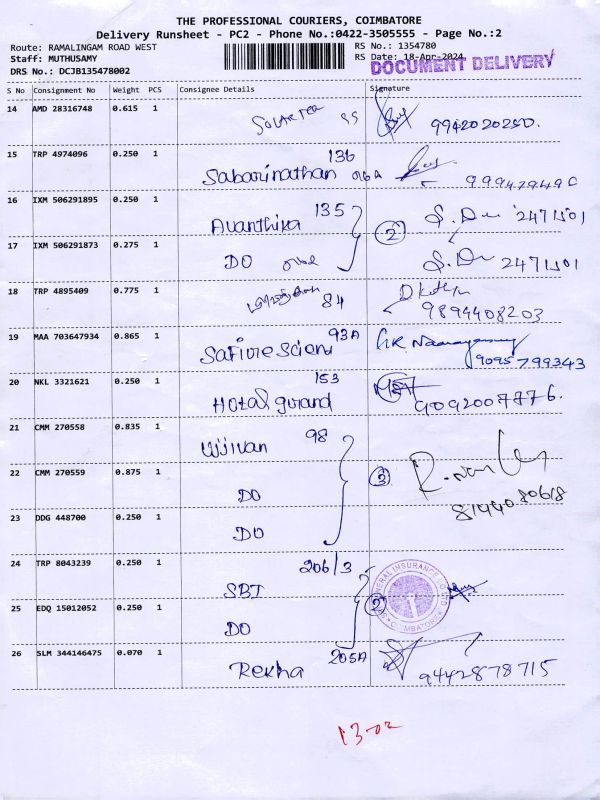 THE PROFESSIONAL COURIERS, COIMBATORE
Delivery Runsheet - PC2 - Phone No.:0422-3505555 - Page No.:2
Route: RAMALINGAM ROAD WEST
RS No.: 1354780
Staff: MUTHUSAMY
RS Date: 18-Apr-2024
DRS No.: DCJB135478002
DOCUMENT DELIVERY
S No Consignment No Weight PCS Consignee Details Signature
14 AMD 28316748 0.615 1
9942020250.
15 TRP 4974096 0.250 1 Sabarinathan 136
16 IXM 506291895 0.250 1 Avanthika 135 2 2471501
17 IXM 506291873 0.275 1 DO 2471501
18 TRP 4895409 0.775 1 84
9894408203
19 MAA 703647934 0.865 1 93A
9095799343
20 NKL 3321621 0.250 1 Hotal grand 153
9092007776.
21 CMM 270558 0.835 1 Ujjivan 98
22 CMM 270559 0.875 1 DO 3
8144080618
23 DDG 448700 0.250 1 DO
24 TRP 8043239 0.250 1 SBI 206/3
25 EDQ 15012052 0.250 1 DO 2
26 SLM 344146475 0.070 1 Rekha 205A
9442878715
13-02